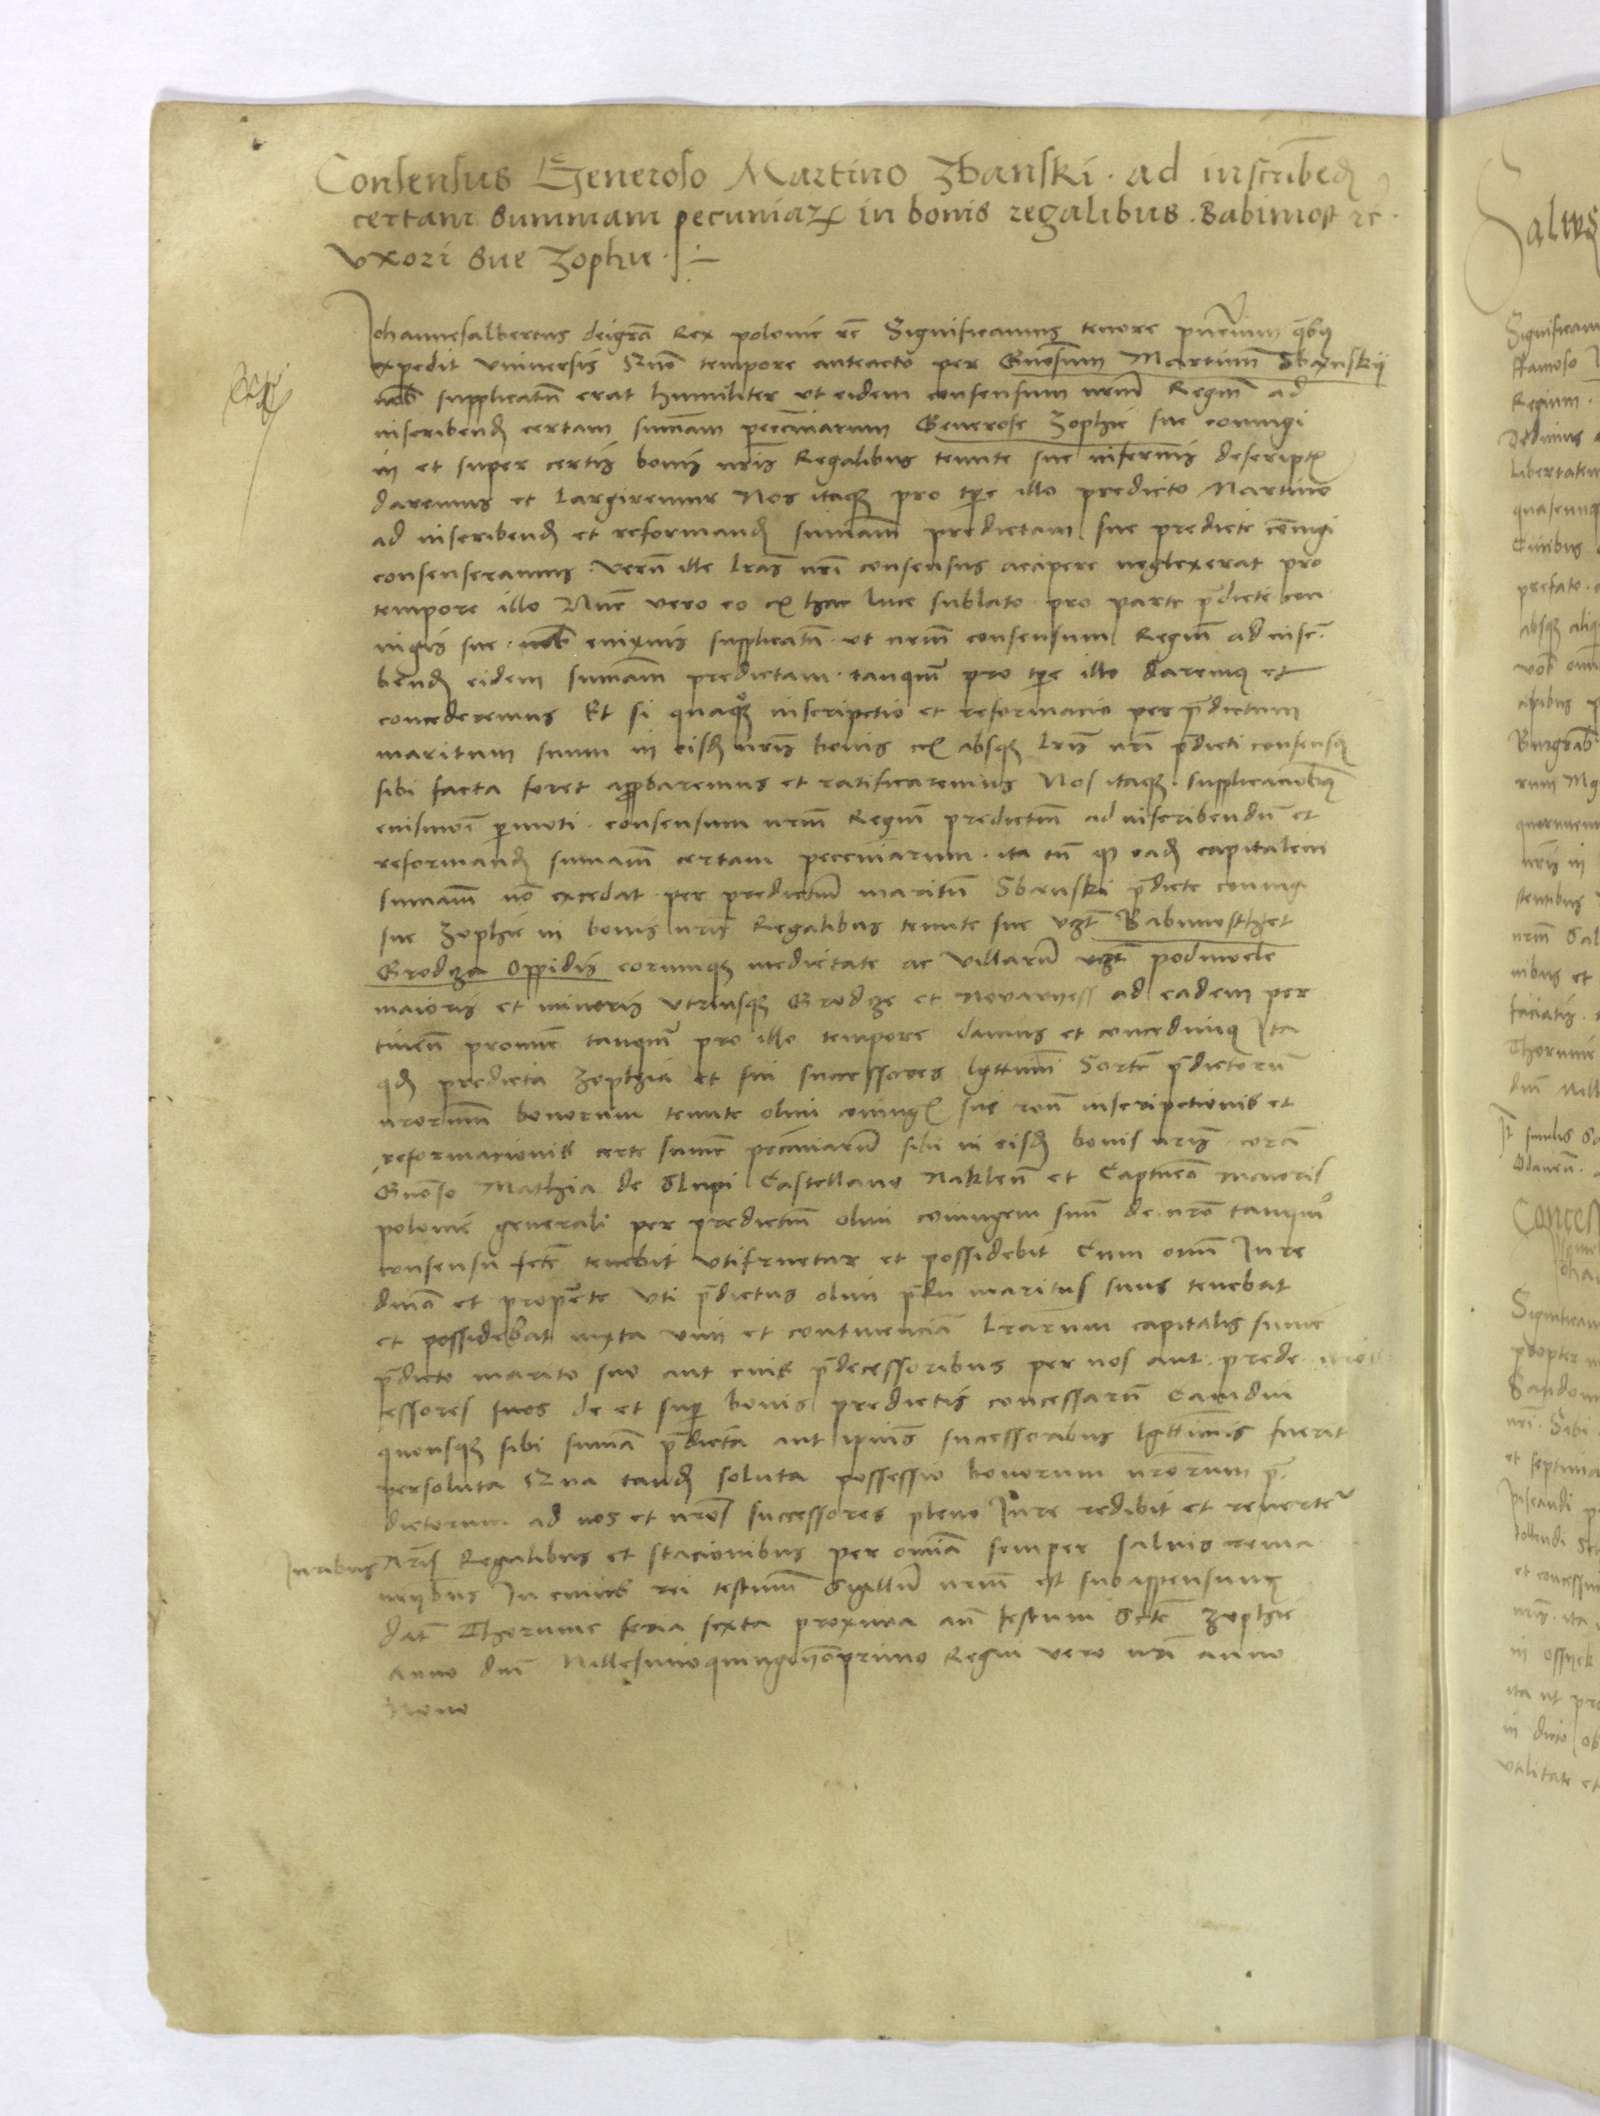 Consensus Generoso Martino Zbanski . ad inscribend
certam summam pecuniarum in bonis regalibus . Babimost rc .
Vxori sue Zophie .
Johannesalbertus deigra Rex polonie rc Significamus tenore pntium qbus
expedit Universis Quo tempore anteacto per Gnosum Martinum Sbanskij
nob supplicatum erat humiliter ut eidem consensum nrm Regium ad
inscribend certam sumam pecciniarum Generose Zophie sue coniugi
in et super certis bonis nris Regalibus tenute sue inferius descriptis
daremus et largiremur Nos itaque pro tpe illo predicto Martino
ad inscribend et reformand sumam predictam sue predicte coniugi
consenseramus . verum ille lras nri consensus accipere neglexerat pro
tempore illo Nunc vero eo ex hac luce sublato pro parte pdicte con
iugis sue . nob enixius supplicatum . ut nrm consensum Regium ad inscri
bend eidem sumam predictam . tanqum pro tpe illo daremus et
concederemus Et si quaque inscripctio et reformacio per pdictum
maritum suum in eisd nris bonis ecz absque lris nri pdicti consensus
sibi facta foret approbaremus et ratificaremus Nos itaque . supplicacionibus
eiusmoi pmoti . consensum nrm Regium predictum ad inscribendum et
reformand sumam certam pecciniarum . ita tn qd ead capitalem
sumam no excedat per predictum maritum Sbanski pdicte coniugi
sue Zophie in bonis nris Regalibus tenute sue vzt Babimosth et
Grodza Oppidis eorumque medietate ac villarum vzt podmocle
maioris et minoris utriusque Grodze et Novavyess ad eadem per
tinen proinne tanqum pro illo tempore damus et concedimus Ita
qd predicta Zophia et sui successores lgttimi Sorte pdictorum
nrorum bonorum tenute olim coniugis sue rone inscripctionis et
reformacionis certe sume pecciniarum sibi in eisd bonis nris . coram
Gnoso Mathia de Slupi Castellano Naklen et Captneo maioris
polonie generali per predictum olim coniugem suum de nro tanqum
consensu fcte tenebit utifruetur et possidebit Cum omi Jure
dnio et propte uti pdictus olim pdn maritus suus tenebat
et possidebat iuxta vim et continenciam lrarum capitalis sume
pdicto marito suo aut eius pdecessoribus per nos aut . prede
cessores nros de et sup bonis predictis concessarum Tamdiu
quousque sibi suma pdicta aut ipius sucessoribus lgttimis fuerit
persoluta Qua tand soluta possessio bonorum nrorum p
dictorum ad nos et nros successores pleno Jure redibit et revertetur
Juribus nris Regalibus et stacionibus per omia semper salvis rema
nentibus In cuius rei testium Sigillum nrm est subappensum
Dat Thorunie feria sexta proxima an festum Scte Zophie
Anno dni Millesimoquingentesimoprimo Regni vero nri anno
Nono